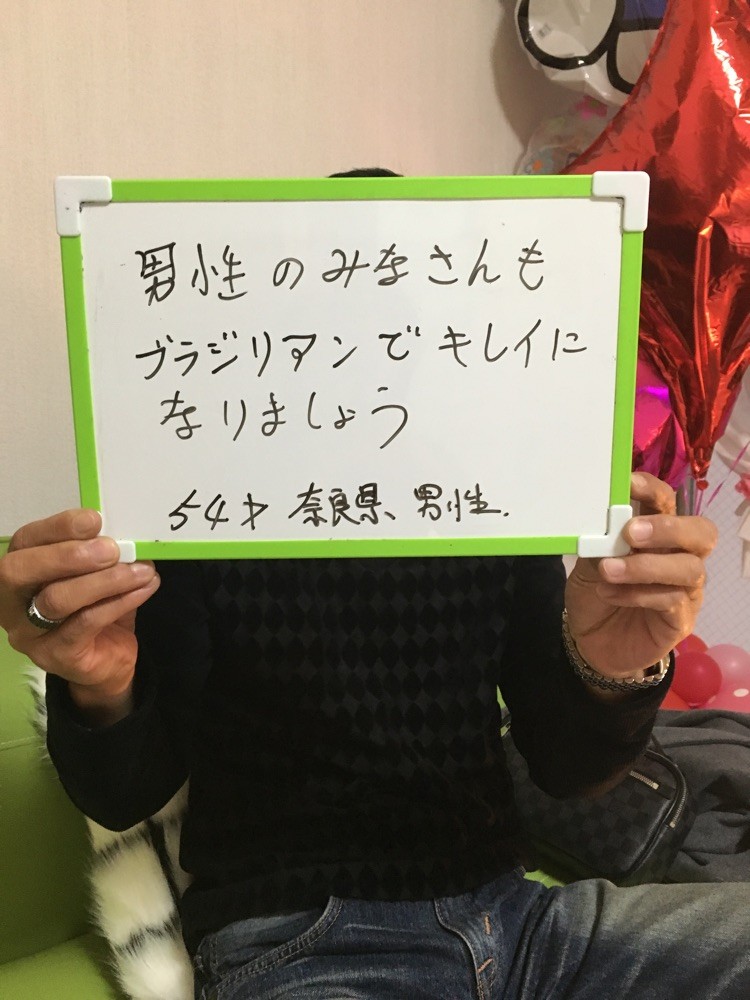 男性のみなさんも
ブラジリアンでキレイに
なりましょう
54才 奈良県、男性.